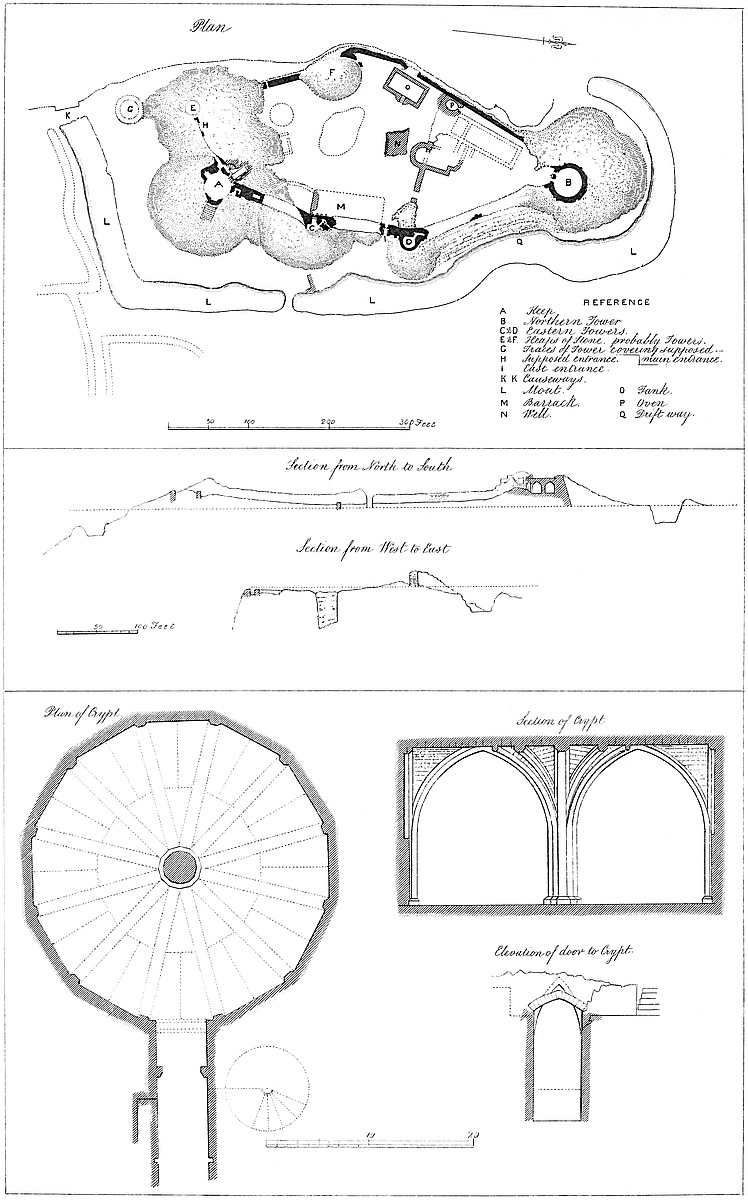 Plan
K
G
E
H
F
O
P
N
A
B
C
M
D
Q
L
L
L
L
REFERENCE
A Keep,
B Northern Tower
C&D Eastern Towers.
E&F Heaps of Stone, probably Towers.
G Traces of Tower covering supposed
H Supposed entrance. main entrance.
I East entrance.
K K Causeways.
L Moat. O Tank.
M Barrack. P Oven
N Well. Q Drift way.
50 100 200 300 Feet
Section from North to South
Section from West to East
50 100 Feet
Plan of Crypt.
Section of Crypt
Elevation of door to Crypt.
10 20